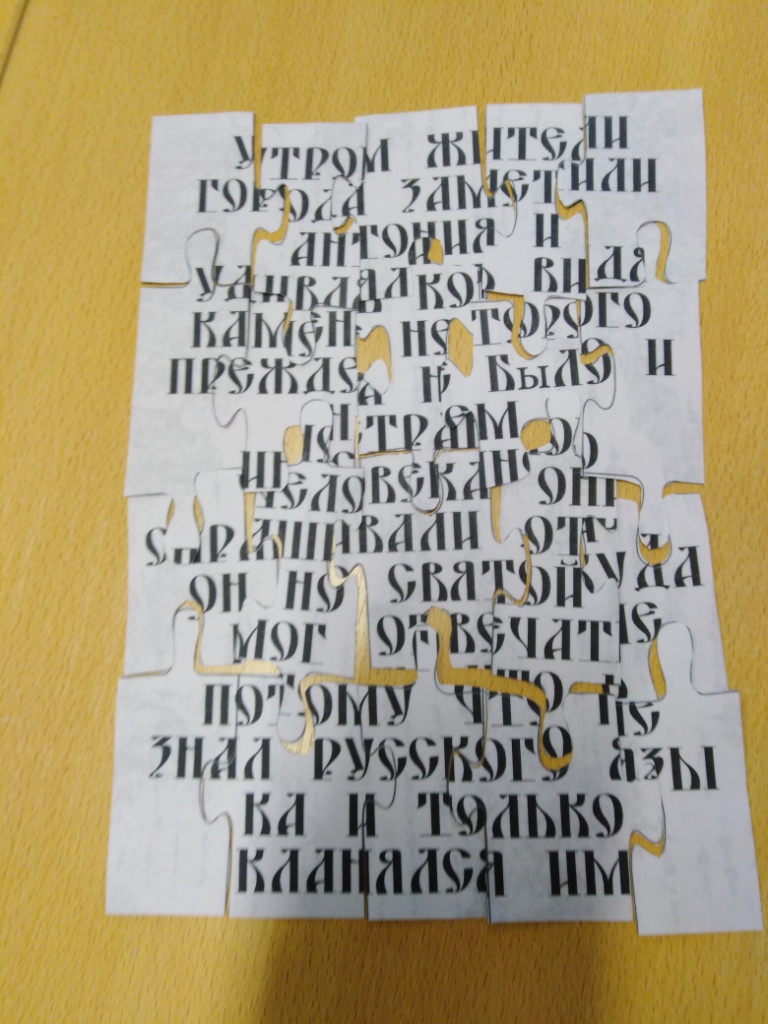 УТРОМ ЖИТЕЛИ
ГОРОДА ЗАМЕТИЛИ
АНТОНИЯ И
УДИВЛЯ КОР ВИДЯ
КАМЕН НЕ ТОРОГО
ПРЕЖДЕ Н БЫЛО И
СТРЕМ
ЧЕЛОВЕКА ОНИ
СПРАШИВАЛИ ОТКУДА
ОН НО СВЯТОЙ
МОГ ОТВЕЧАТ НЕ
ПОТОМУ ЧТО НЕ
ЗНАЛ РУССКОГО ЯЗЫ
КА И ТОЛЬКО
КЛАНЯЛСЯ ИМ